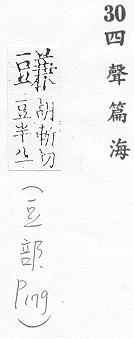 30 四聲篇海
胡斬切
豆半生
(豆部 P179)